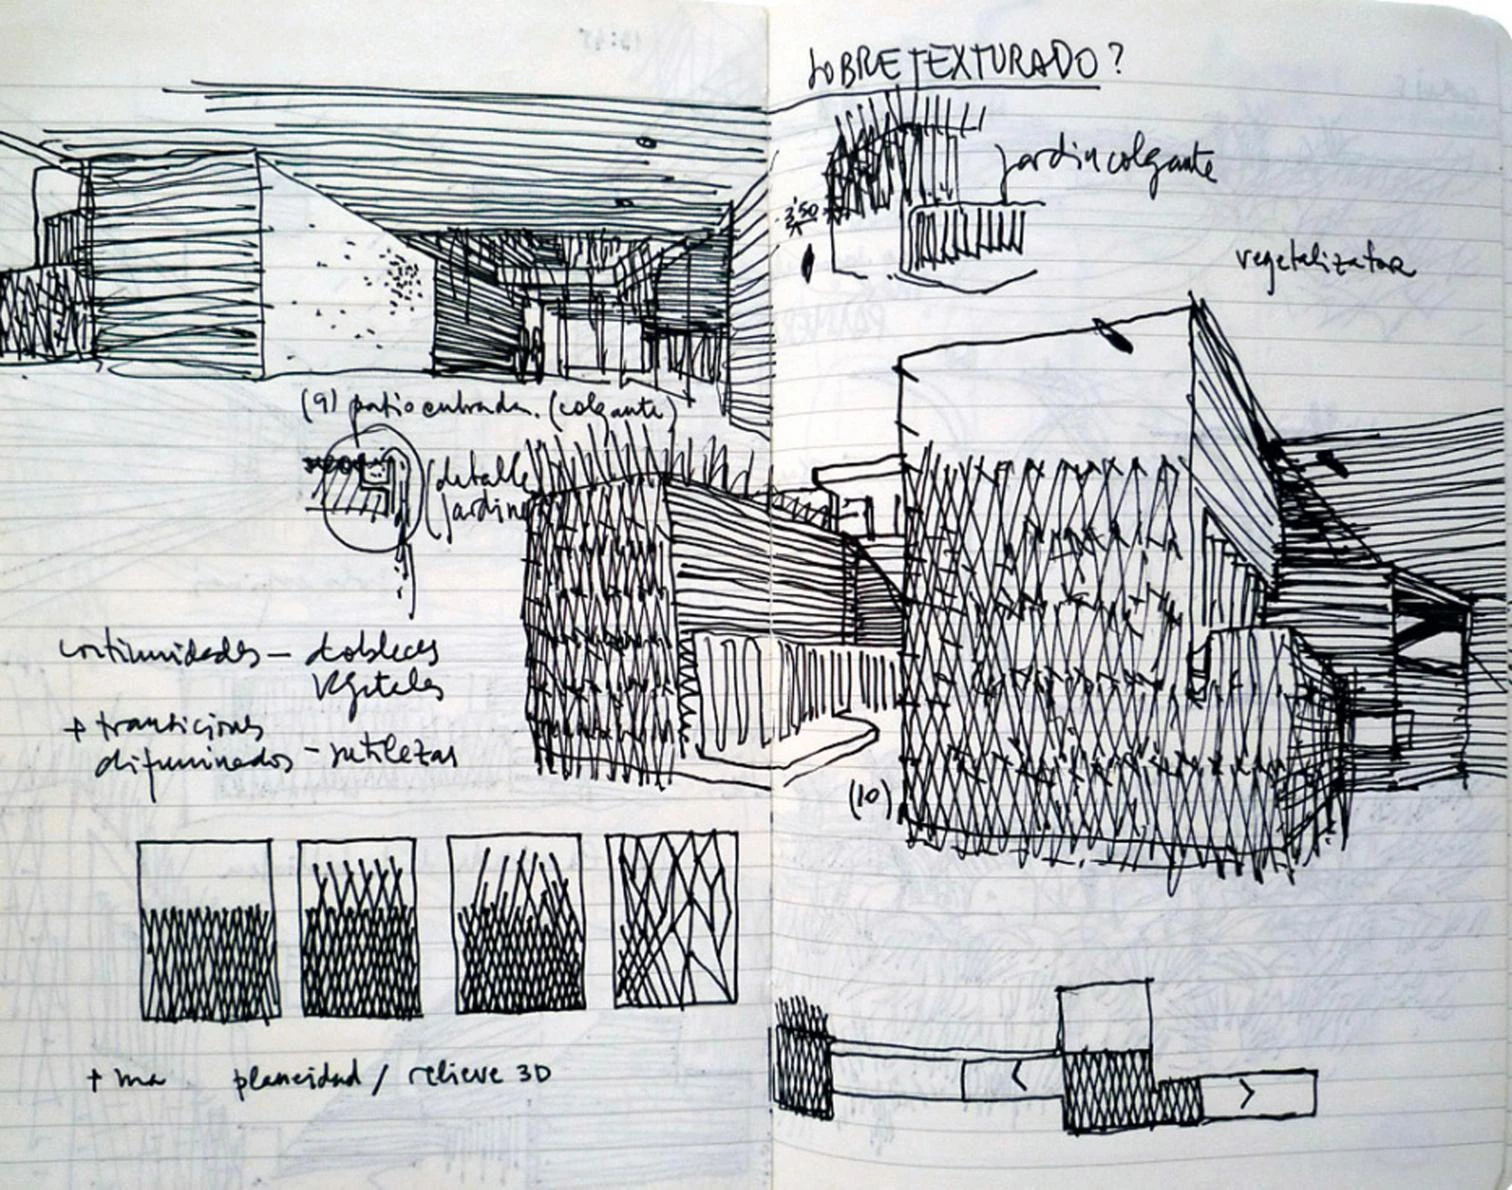 (9) patio entrada. (colgante)
(detalle
jardinera
continuidades — dobleces
vegetales
+ transiciones
difuminados — sutilezas
+ ma planeidad / relieve 3D
SOBRETEXTURADO?
jardin colgante
3'50
vegetalizator
(10)